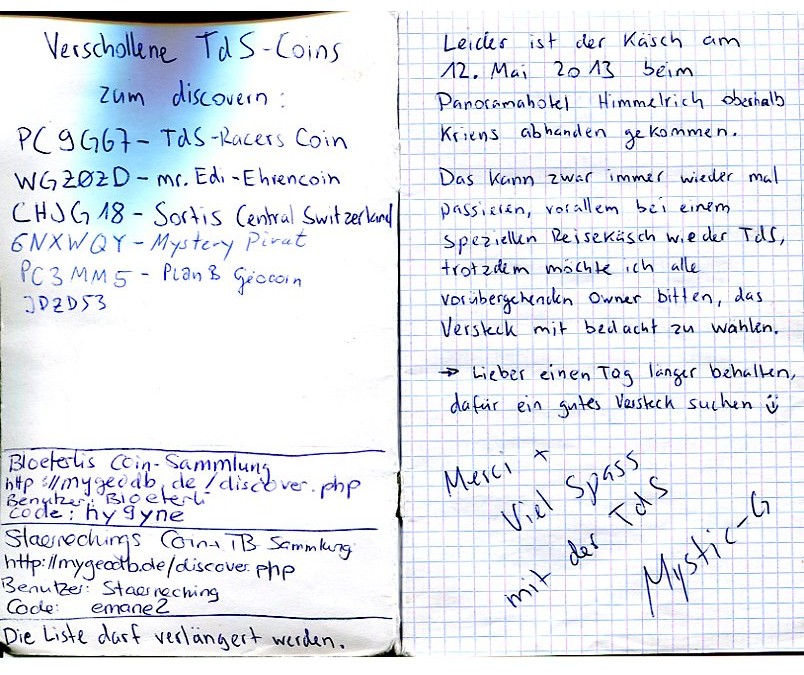 Verschollene TdS-Coins
zum discovern:
PC9G67 - TdS-Racers Coin
WGZ0ZD - mr. Edi - Ehrencoin
CHJG18 - Sortis Central Switzerland
6NXWQY - Mystery Pirat
PC3MM5 - Plan B Geocoin
JDZD53
Bloeterlis Coin-Sammlung
http://mygeodb.de/discover.php
Benutzer: Bloeterli
Code: hygyne
Staernechings Coin + TB Sammlung
http://mygeodb.de/discover.php
Benutzer: Staerneching
Code: emane2
Die Liste darf verlängert werden.
Leider ist der Käsch am
12. Mai 2013 beim
Panoramahotel Himmelrich oberhalb
Kriens abhanden gekommen.
Das kann zwar immer wieder mal
passieren, vorallem bei einem
speziellen Reisekäsch wie der TdS,
trotzdem möchte ich alle
vorübergehenden Owner bitten, das
Versteck mit bedacht zu wählen.
→ Lieber einen Tag länger behalten,
dafür ein gutes Versteck suchen ☺
Merci +
Viel Spass
mit der TdS
Mystic-G